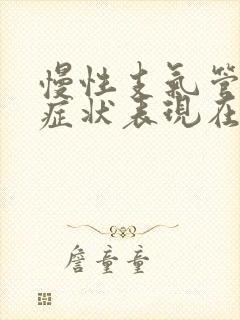 慢性支氣管
症状表現在
詹童童